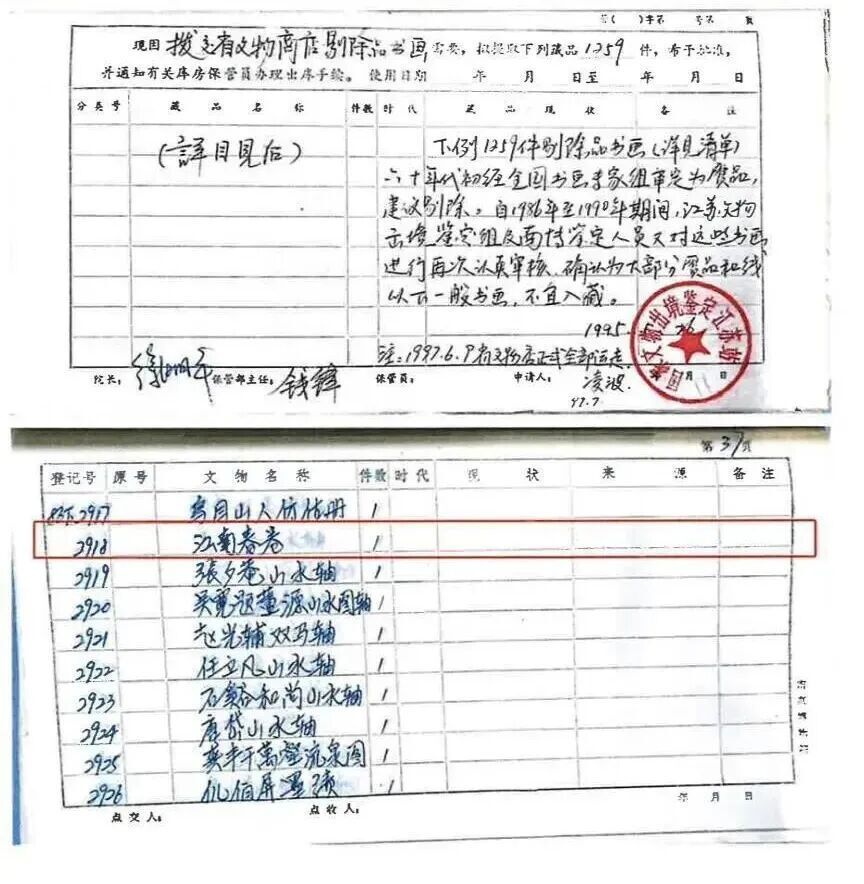 第( )字第 号第 页
现因 拨交省文物商店剔除品书画 需要，拟提取下列藏品 1259 件，希予批准，
并通知有关库房保管员办理出库手续。 使用日期 年 月 日至 年 月 日
分类号 藏品名称 件数 时代 藏品现状 备注
(詳目見后)
下例1259件剔除品书画(详見清单)
六十年代初经全国书画专家组审定为赝品，
建议剔除。自1986年至1990年期间，江苏文物
出境鉴定组及南博鉴定人员又对这些书画
进行再次认真审核，确认为大部分赝品和线
以下一般书画，不宜入藏。
1995. 5. 26
注:1997.6.9省文物店正式全部运走
院长: 徐湖平 保管部主任: 钱锋 保管员: 申请人: 凌波 月 日
97.7.
国家文物出境鉴定江苏站
第 37 页
登记号 原号 文物名称 件数 时代 现状 来源 备注
2917 乌目山人仿古册 1
2918 江南春卷 1
2919 張夕菴山水轴 1
2920 吴寛题董源山水图轴 1
2921 赵光辅双马轴 1
2922 任立凡山水轴 1
2923 石谿和尚山水轴 1
2924 唐岱山水轴 1
2925 萬壑流泉图 1
2926 屏墨 1
点交人: 点收人: 年 月 日